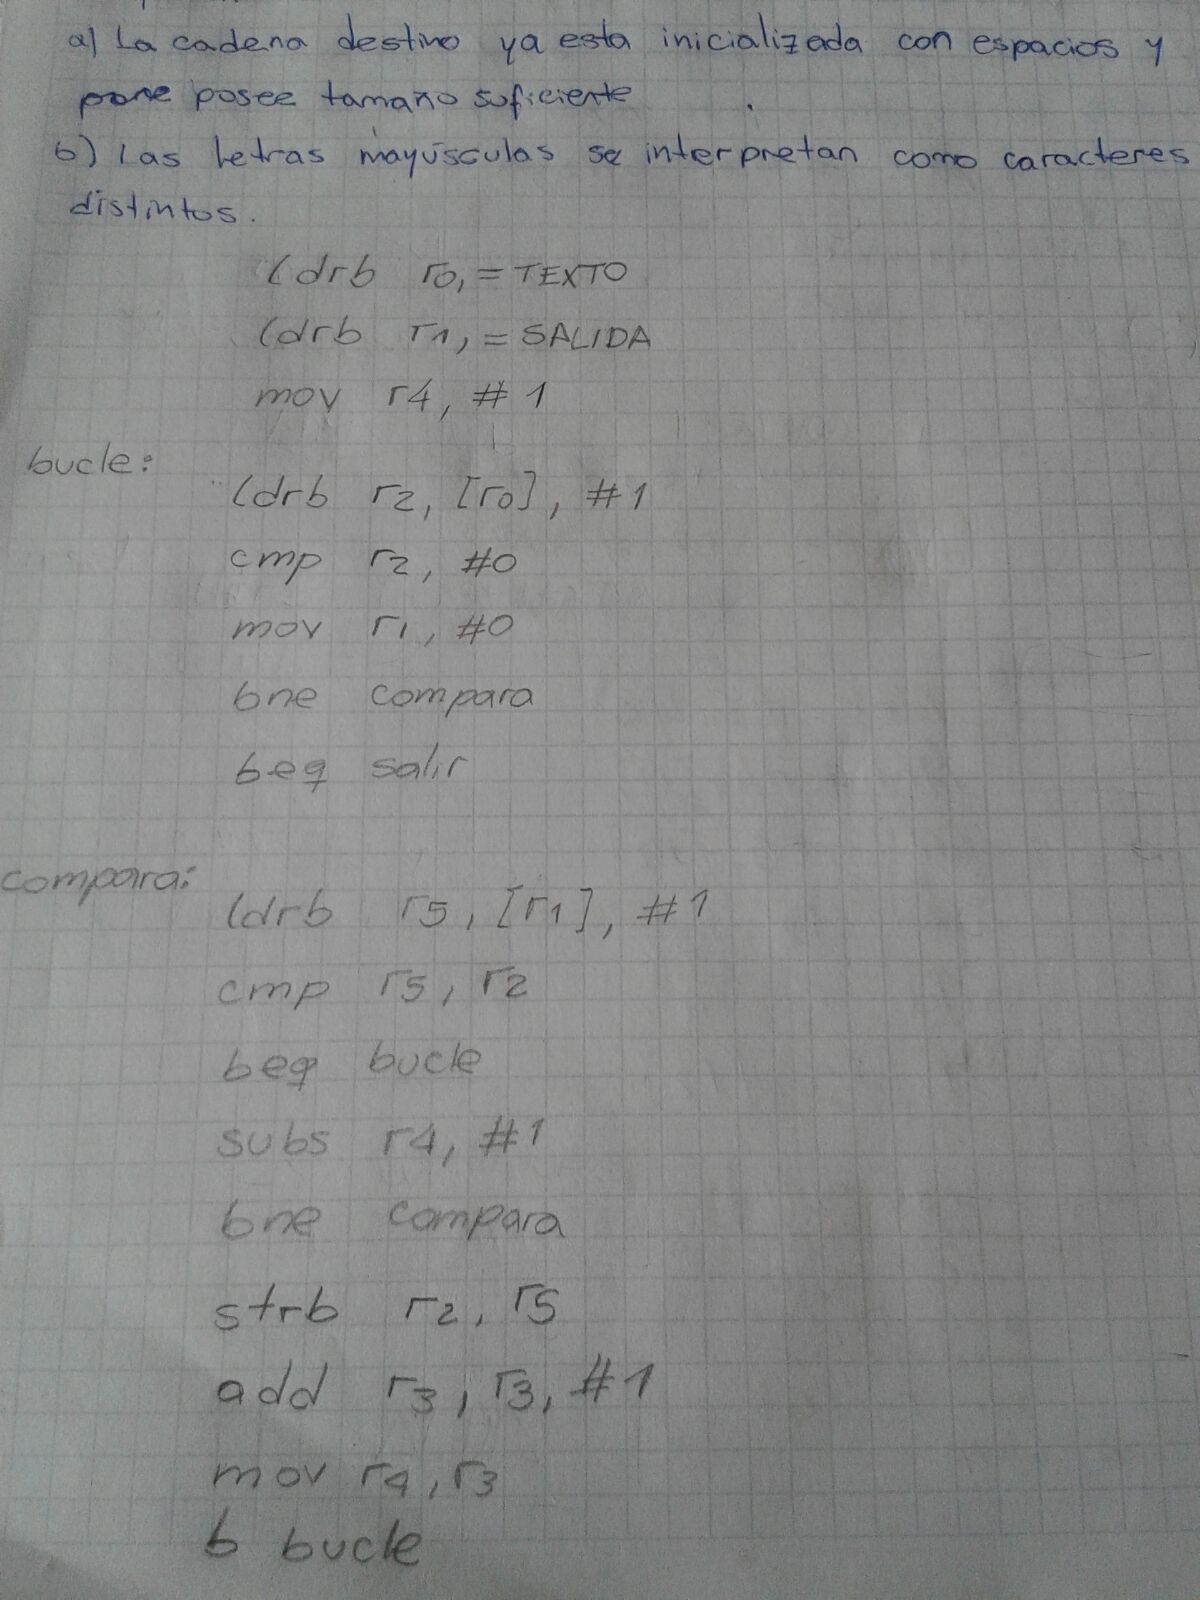 a) La cadena destino ya esta inicializada con espacios y
posee tamaño suficiente
b) Las letras mayúsculas se interpretan como caracteres
distintos.
ldrb r0, = TEXTO
ldrb r1, = SALIDA
mov r4, # 1
bucle:
ldrb r2, [r0], #1
cmp r2, #0
mov r1, #0
bne compara
beq salir
compara:
ldrb r5, [r1], #1
cmp r5, r2
beq bucle
subs r4, #1
bne compara
strb r2, r5
add r3, r3, #1
mov r4, r3
b bucle